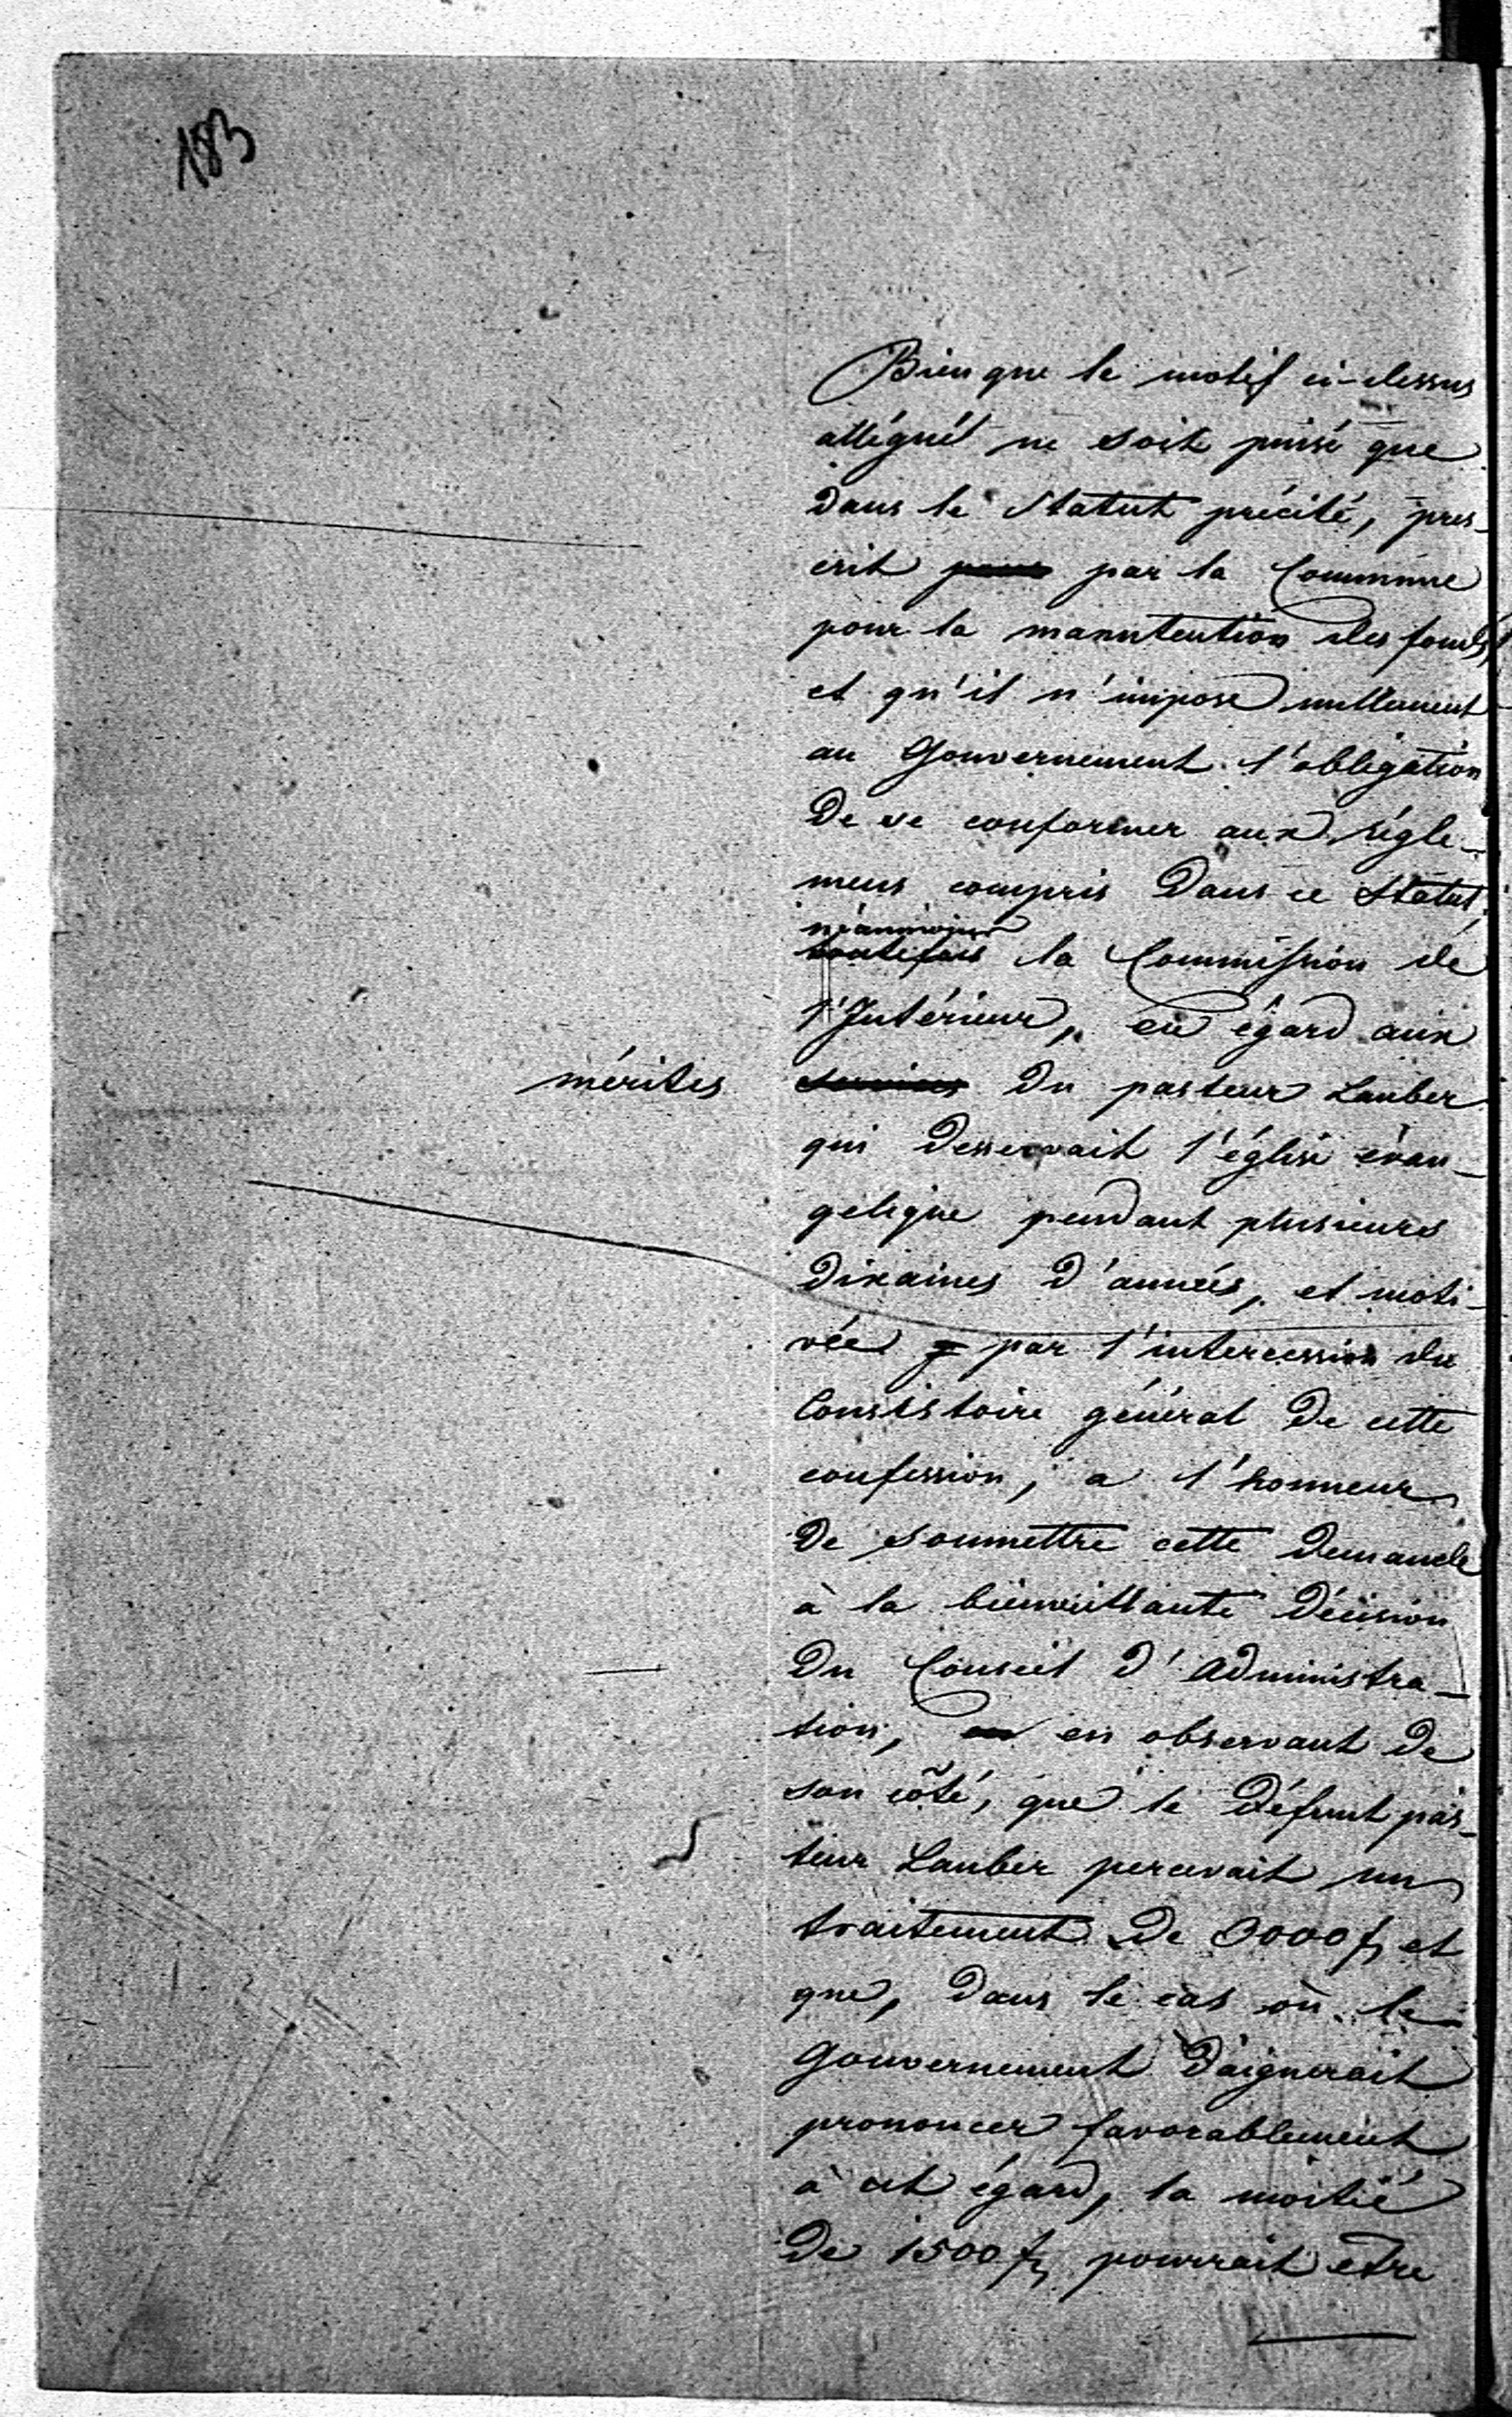 183
Bien que le motif ci-dessus
allégué ne soit puisé que
dans le Statut précité, pres-
crit par la Commune
pour la manutention des fonds,
et qu'il n'impose nullement
au Gouvernement l'obligation
de se conformer aux régle-
mens compris dans ce Statut,
néanmoins
toutefois la Commission de
l'Intérieur, eu égard aux
mérites
services du pasteur Lauber
qui desservait l'église évan-
gelique pendant plusieurs
dixaines d'années, et moti-
vée par l'intercession du
Consistoire général de cette
confession, a l'honneur
de soumettre cette demande
à la bienveillante décision
du Conseil d'Administra-
tion, en observant de
son côté, que le défunt pas-
teur Lauber percevait un
traitement de 3000 f, et
que, dans le cas où le
Gouvernement daignerait
prononcer favorablement
à cet égard, la moitié
de 1500 f, pourrait etre